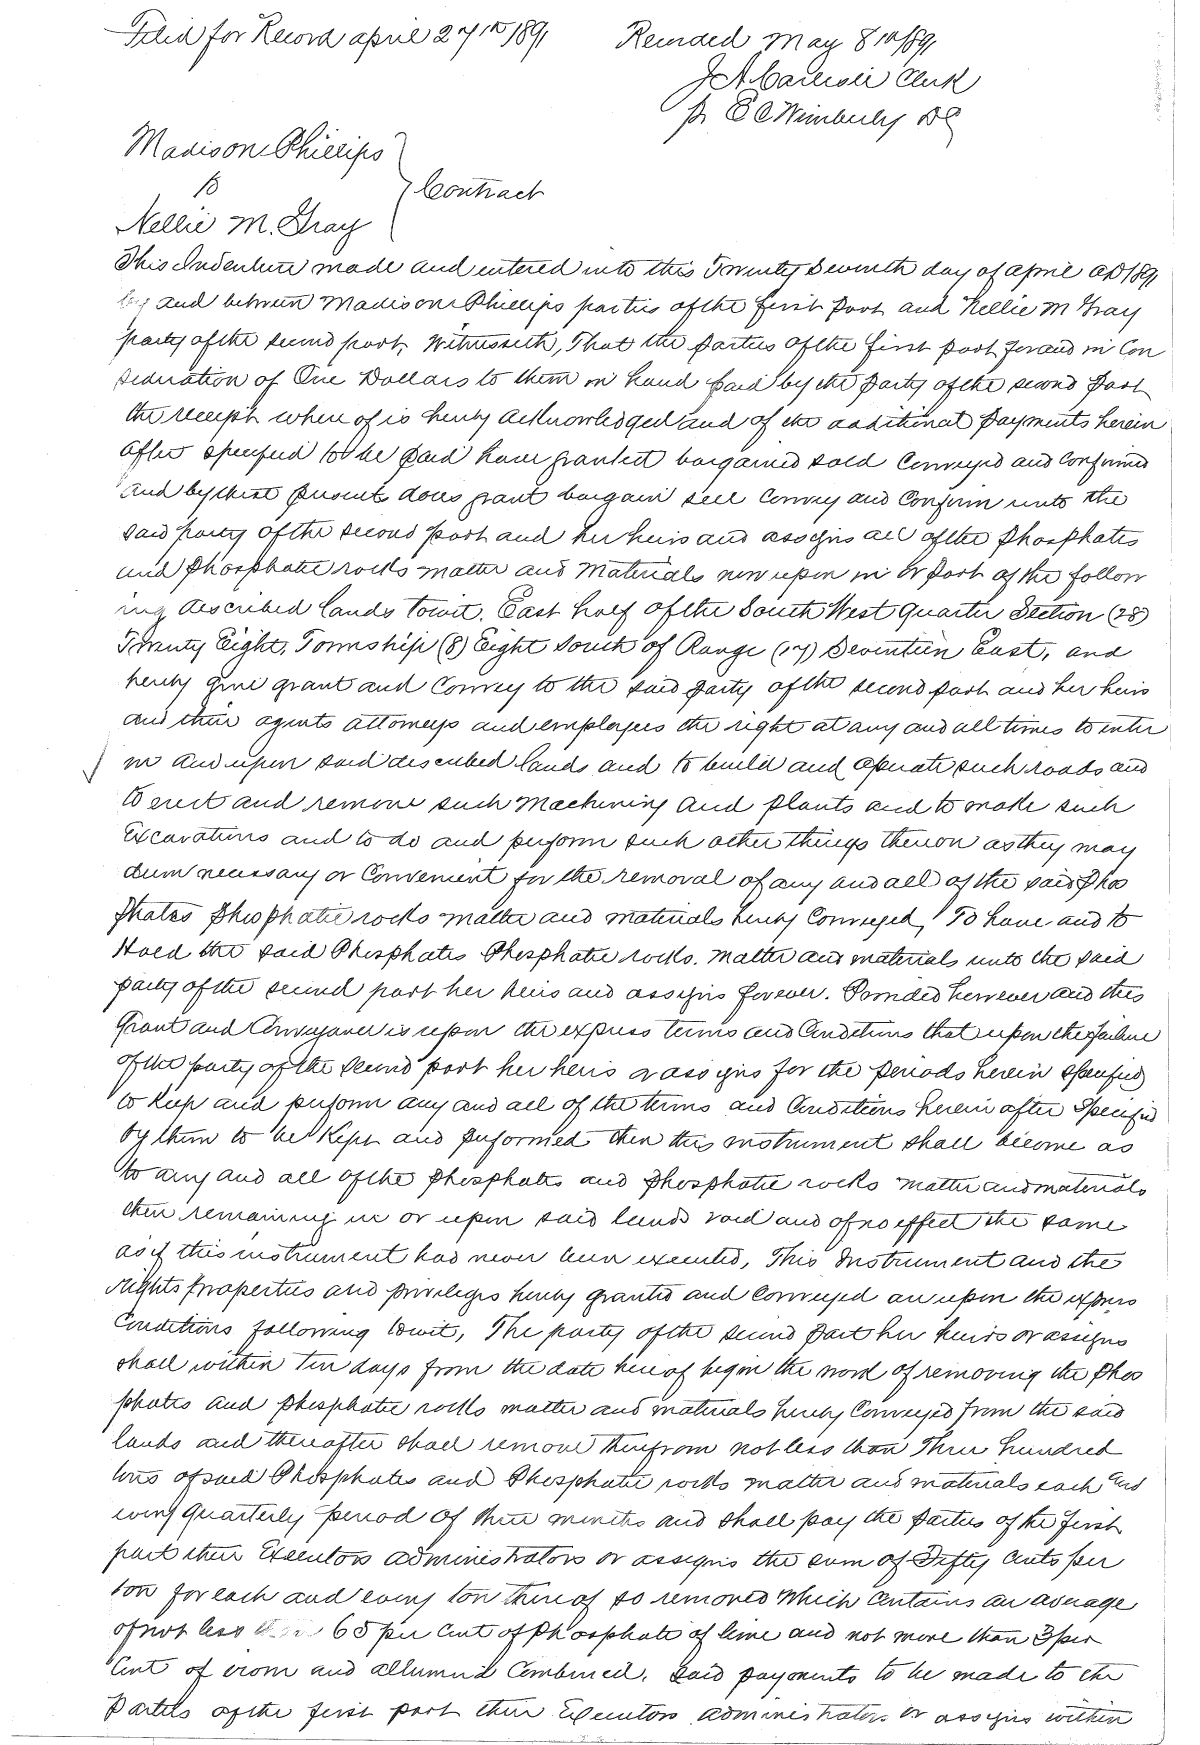 Filed for Record april 27th 1891 Recorded May 8th 1891
J A Carlisle Clerk
pr E C Wimberly DC
Madison Phillips
to
Contract
Nellie M. Gray
This Indenture made and entered into this Twenty Seventh day of april AD 1891
by and between Madison Phillips parties of the first part and Nellie M Gray
party of the second part, Witnesseth, That the parties of the first part for and in Con
sideration of One Dollars to them in hand paid by the party of the second part
the receipt where of is hereby acknowledged and of the additional payments herein
after specified to be paid have granted bargained sold Conveyed and Confirmed
and by these presents does grant bargain sell Convey and Confirm unto the
said party of the second part and her heirs and assigns all of the phosphates
and phosphatic rocks matter and Materials now upon in or part of the follow
ing described lands towit. East half of the South West quarter Section (28)
Twenty Eight, Township (8) Eight South of Range (17) Seventeen East, and
hereby give grant and Convey to the said party of the second part and her heirs
and their agents attorneys and employees the right at any and all times to enter
in and upon said described lands and to build and operate such roads and
to erect and remove such Machinery and plants and to make such
Excavations and to do and perform such other things thereon as they may
deem necessary or Convenient for the removal of any and all of the said Phos
phates phosphatic rocks matter and materials hereby Conveyed, To have and to
Hold the said Phosphates Phosphatic rocks. matter and materials unto the said
party of the second part her heirs and assigns forever. Provided however and this
Grant and Conveyance is upon the express terms and Conditions that upon the failure
of the party of the second part her heirs or assigns for the periods herein specified
to keep and perform any and all of the terms and Conditions herein after Specified
by them to be Kept and performed then this instrument shall become as
to any and all of the phosphates and phosphatic rocks matter and materials
then remaining in or upon said lands void and of no effect the same
as if this instrument had never been executed, This Instrument and the
rights properties and privileges hereby granted and Conveyed are upon the express
Conditions following towit, The party of the second part her heirs or assigns
shall within ten days from the date here of begin the work of removing the phos
phates and phosphatic rocks matter and materials hereby Conveyed from the said
lands and thereafter shall remove therefrom not less than Three hundred
tons of said Phosphates and Phosphatic rocks matter and materials each and
every quarterly period of three months and shall pay the parties of the first
part their Executors administrators or assigns the sum of Fifty Cents per
ton for each and every ton there of so removed which Contains an average
of not less than 65 per cent of Phosphate of lime and not more than 3 per
Cent of irom and allumnd Combined. Said payments to be made to the
Parties of the first part their Executors administrators or assigns within